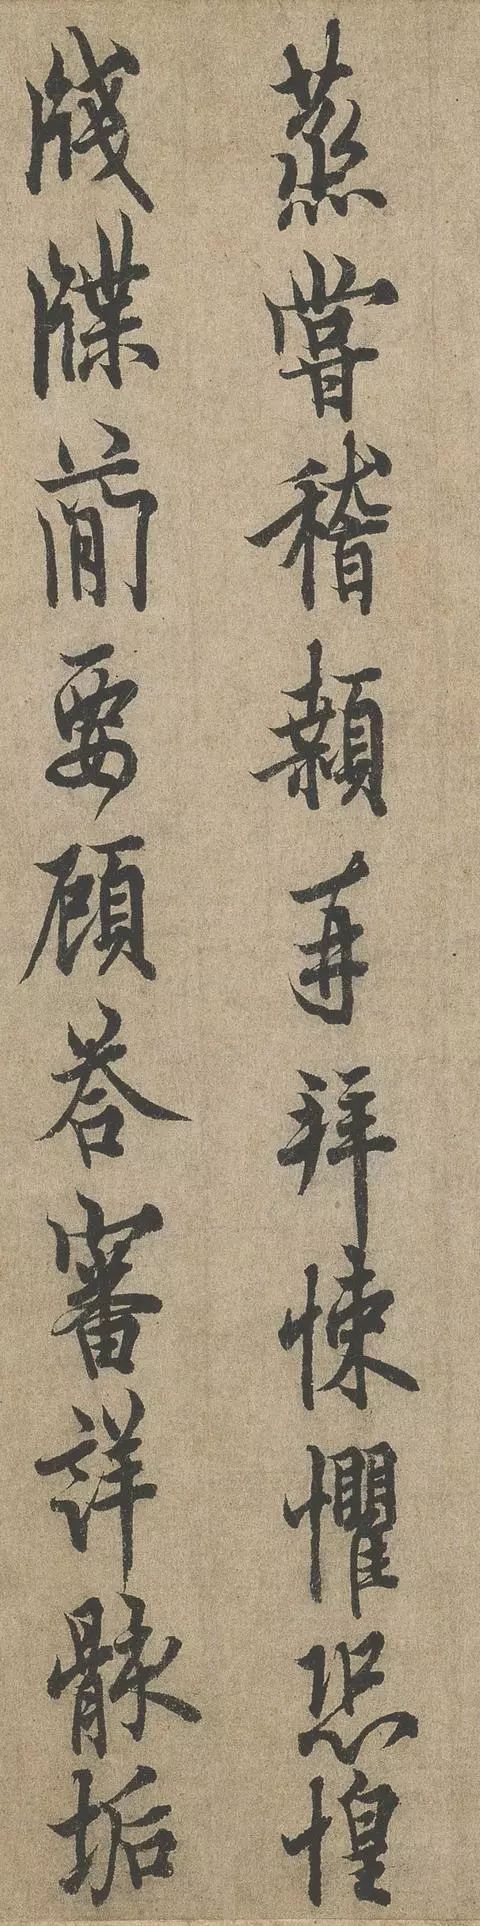 蒸嘗稽顙再拜悚懼恐惶
牋牒簡要顧答審詳骸垢